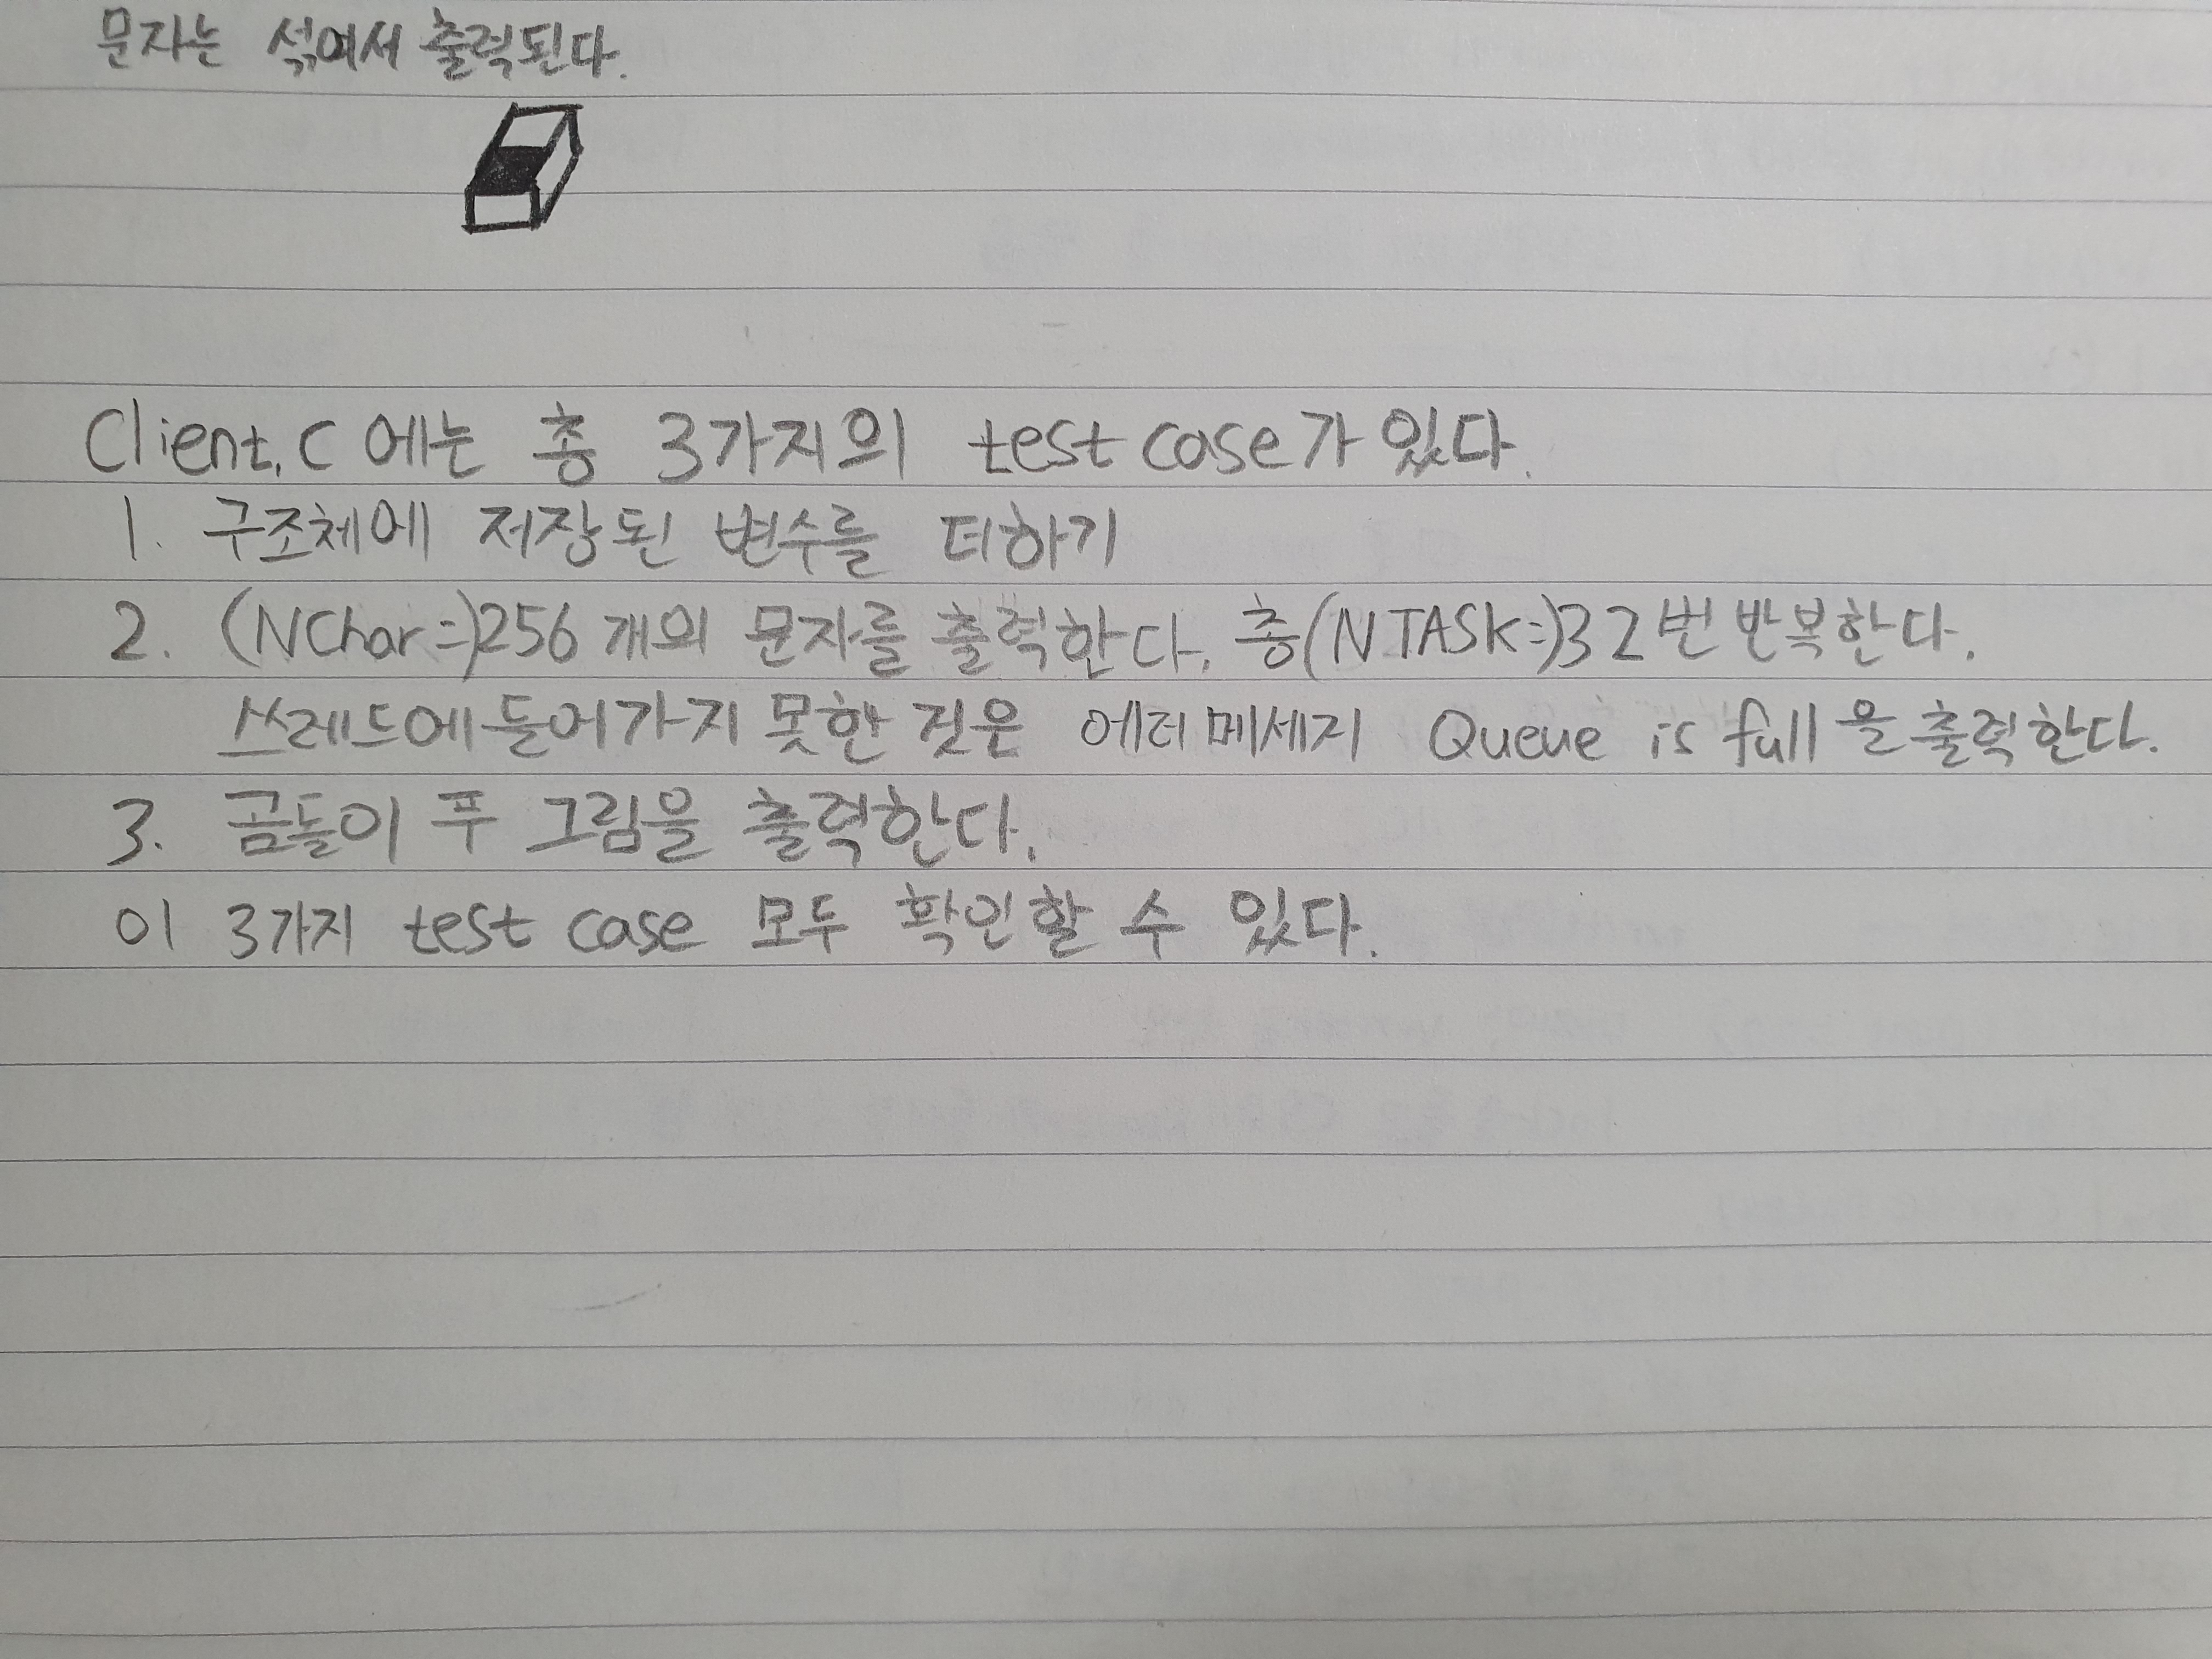 문자는 쉘에서 출력된다.
Client.C 에는 총 3가지의 test case가 있다.
1. 구조체에 저장된 변수들 더하기
2. (NChar=)256 개의 문자를 출력한다. 총(NTASK=)32번 반복한다.
쓰레드에 들어가지 못한 건은 에러메세지 Queue is full 을 출력한다.
3. 곰돌이 푸 그림을 출력한다.
이 3가지 test case 모두 확인할 수 있다.